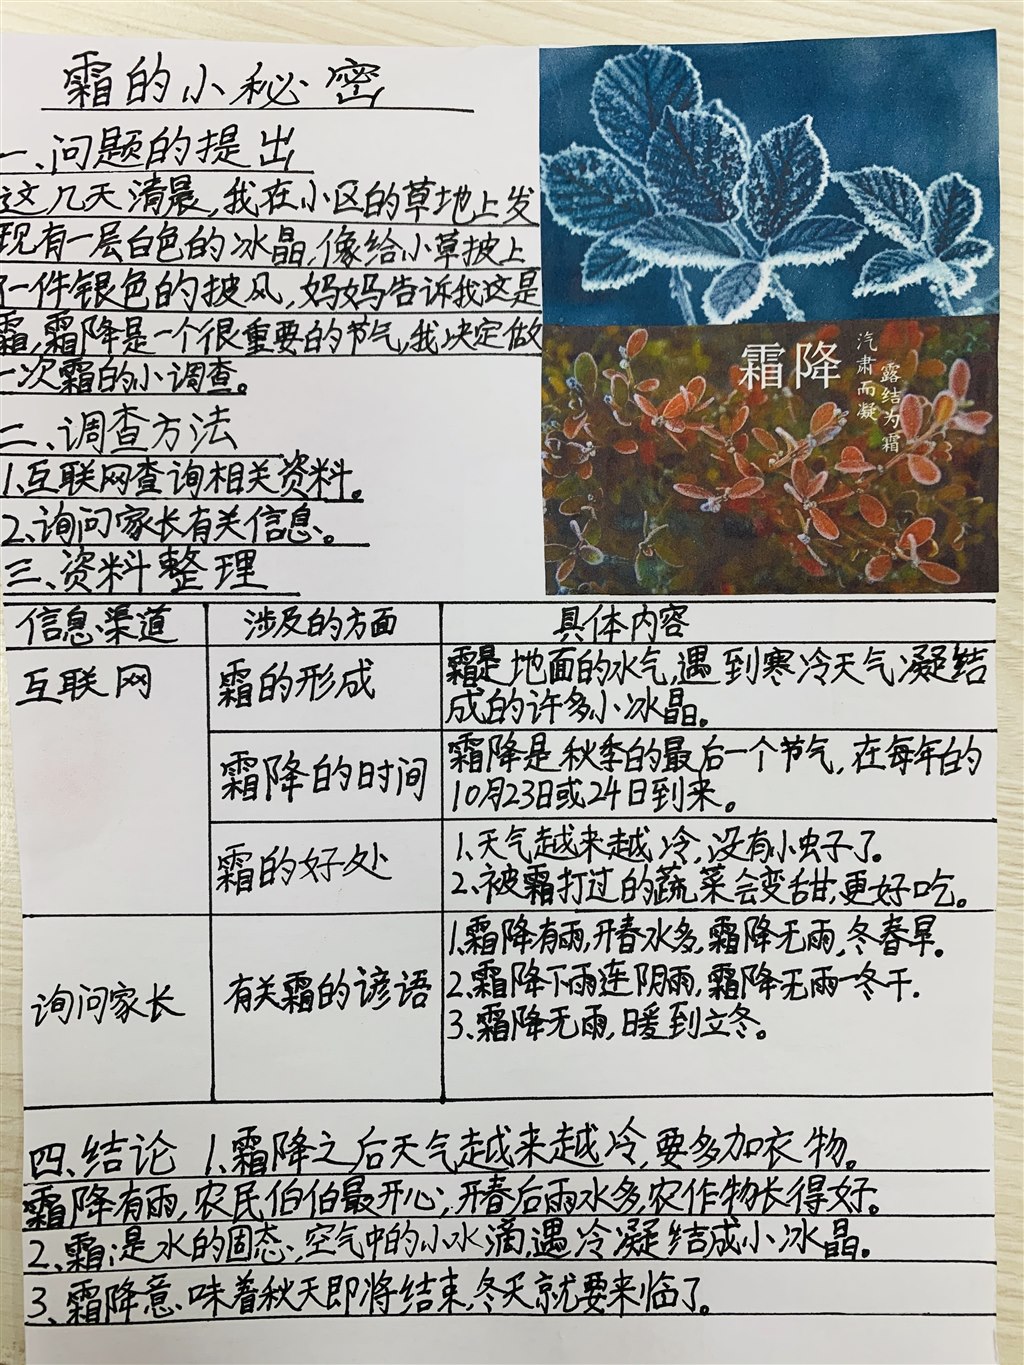 霜的小秘密
一、问题的提出
这几天清晨,我在小区的草地上发
现有一层白色的冰晶,像给小草披上
了一件银色的披风,妈妈告诉我这是
霜,霜降是一个很重要的节气,我决定做
一次霜的小调查。
霜降
汽肃而凝
露结为霜
二、调查方法
1、互联网查询相关资料。
2、询问家长有关信息。
三、资料整理
信息渠道 涉及的方面 具体内容
互联网 霜的形成 霜是地面的水气,遇到寒冷天气凝结
成的许多小冰晶。
霜降的时间 霜降是秋季的最后一个节气,在每年的
10月23日或24日到来。
霜的好处 1、天气越来越冷,没有小虫子了。
2、被霜打过的蔬菜会变甜,更好吃。
询问家长 有关霜的谚语 1、霜降有雨,开春水多,霜降无雨,冬春旱。
2、霜降下雨连阴雨,霜降无雨一冬干.
3、霜降无雨,日暖到立冬。
四、结论 1、霜降之后天气越来越冷,要多加衣物。
霜降有雨,农民伯伯最开心,开春后雨水多,农作物长得好。
2、霜是水的固态,空气中的小水滴,遇冷凝结成小冰晶。
3、霜降意味着秋天即将结束,冬天就要来临了。